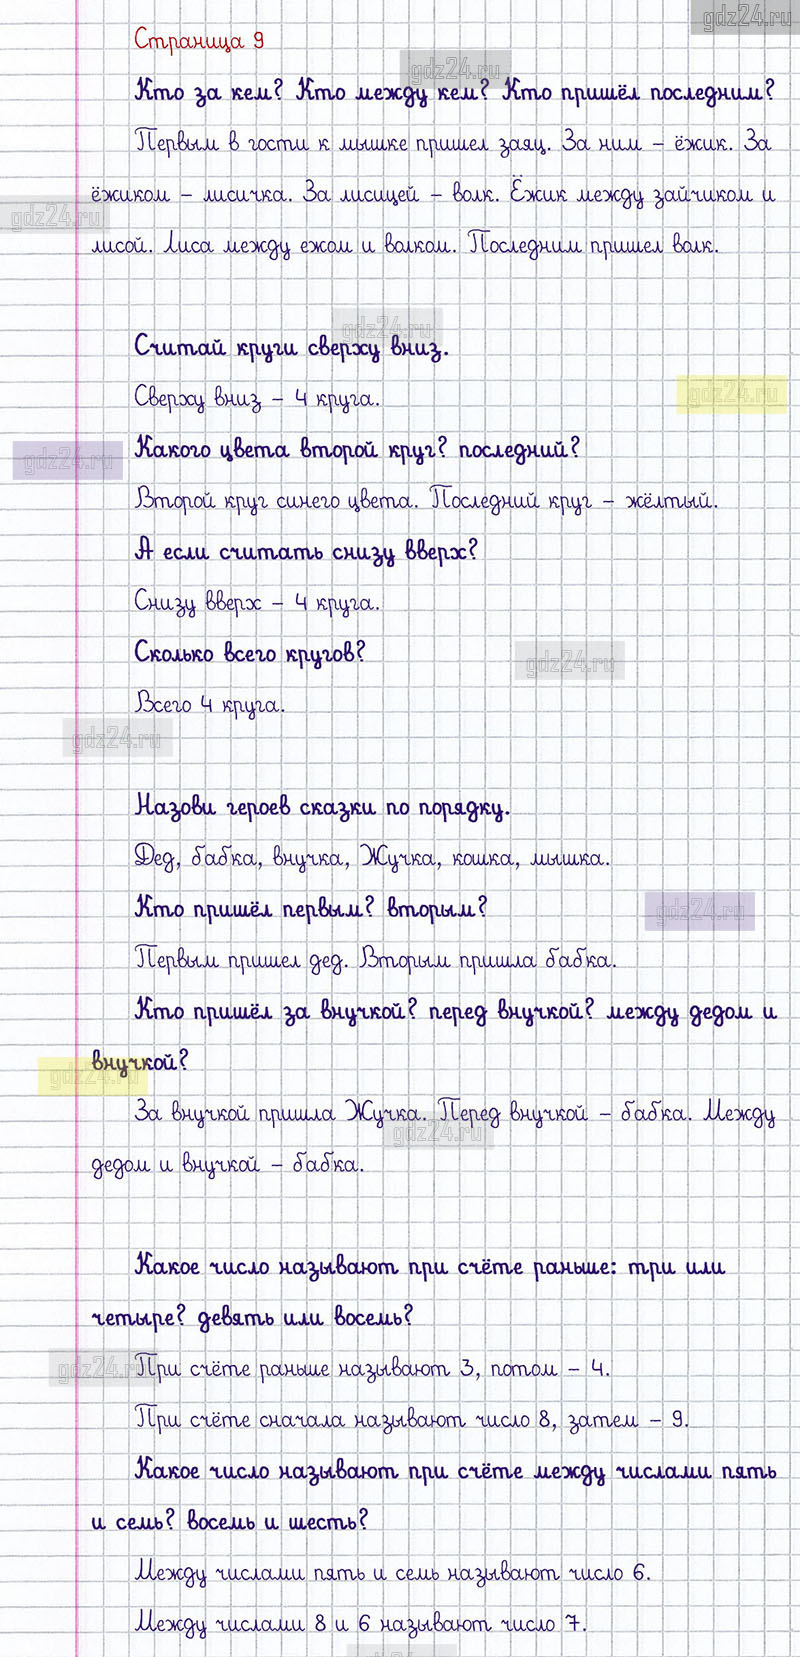 gdz24.ru
Страница 9
gdz24.ru
Кто за кем? Кто между кем? Кто пришёл последним?
Первым в гости к мышке пришел заяц. За ним – ёжик. За
ёжиком – лисичка. За лисицей – волк. Ёжик между зайчиком и
gdz24.ru
лисой. Лиса между ежом и волком. Последним пришел волк.
gdz24.ru
Считай круги сверху вниз.
Сверху вниз – 4 круга.
gdz24.ru
Какого цвета второй круг? последний?
gdz24.ru
Второй круг синего цвета. Последний круг – жёлтый.
А если считать снизу вверх?
Снизу вверх – 4 круга.
Сколько всего кругов?
gdz24.ru
Всего 4 круга.
gdz24.ru
Назови героев сказки по порядку.
Дед, бабка, внучка, Жучка, кошка, мышка.
Кто пришёл первым? вторым?
gdz24.ru
Первым пришел дед. Вторым пришла бабка.
Кто пришёл за внучкой? перед внучкой? между дедом и
внучкой?
gdz24.ru
За внучкой пришла Жучка. Перед внучкой – бабка. Между
gdz24.ru
дедом и внучкой – бабка.
Какое число называют при счёте раньше: три или
четыре? девять или восемь?
gdz24.ru
При счёте раньше называют 3, потом – 4.
При счёте сначала называют число 8, затем – 9.
Какое число называют при счёте между числами пять
и семь? восемь и шесть?
Между числами пять и семь называют число 6.
Между числами 8 и 6 называют число 7.
gdz24.ru